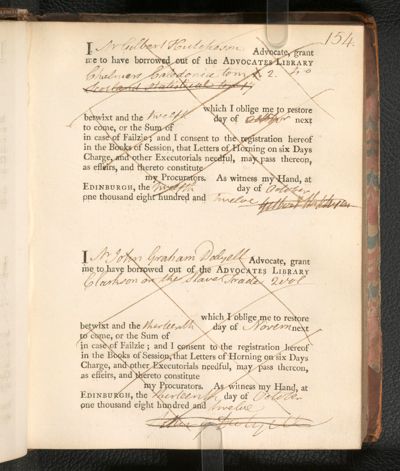 154.
I Mr Gilbert Hutcheson Advocate, grant
me to have borrowed out of the ADVOCATES LIBRARY
Chalmers Caledonia tom 2.
Scotland Statistical
which I oblige me to restore
betwixt and the twelfth day of next
to come, or the Sum of
in case of Failzie; and I consent to the registration hereof
in the Books of Session, that Letters of Horning on six Days
Charge, and other Executorials needful, may pass thereon,
as effeirs, and thereto constitute
my Procurators. As witness my Hand, at
EDINBURGH, the twelfth day of October
one thousand eight hundred and twelve
I Mr John Graham Dalyell Advocate, grant
me to have borrowed out of the ADVOCATES LIBRARY
Clarkson on the Slave Trade 2 vol
which I oblige me to restore
betwixt and the thirteenth day of Novem next
to come, or the Sum of
in case of Failzie; and I consent to the registration hereof
in the Books of Session, that Letters of Horning on six Days
Charge, and other Executorials needful, may pass thereon,
as effeirs, and thereto constitute
my Procurators. As witness my Hand, at
EDINBURGH, the thirteenth day of October
one thousand eight hundred and twelve